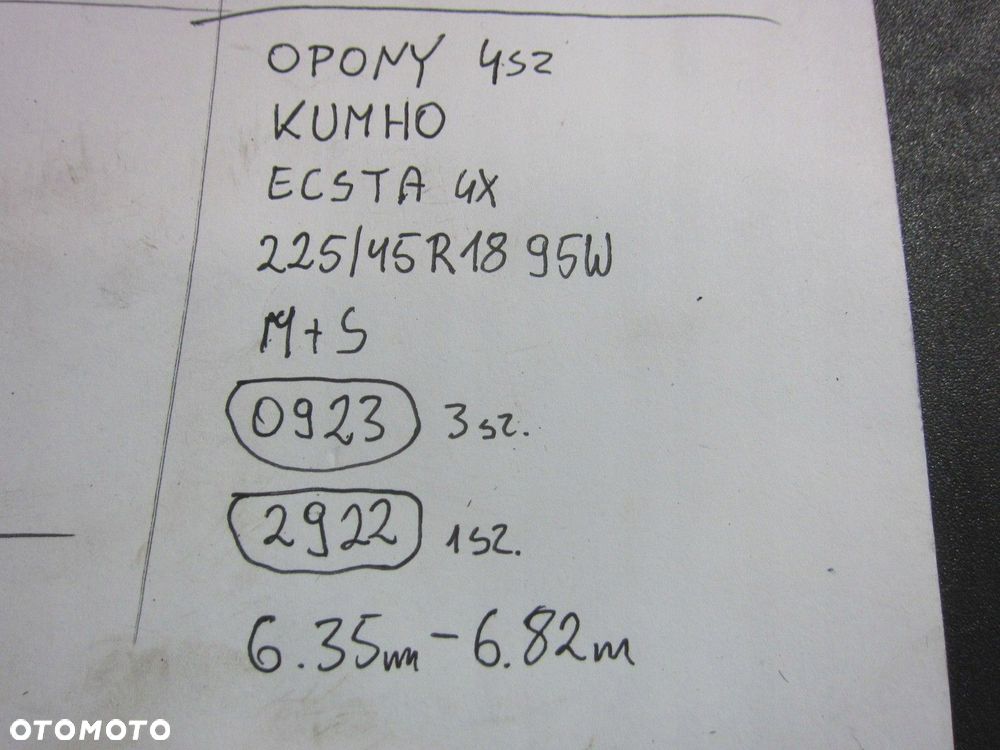 OPONY 4sz
KUMHO
ECSTA 4X
225/45R18 95W
M+S
0923 3sz.
2922 1sz.
6.35mm-6.82m
OTOMOTO